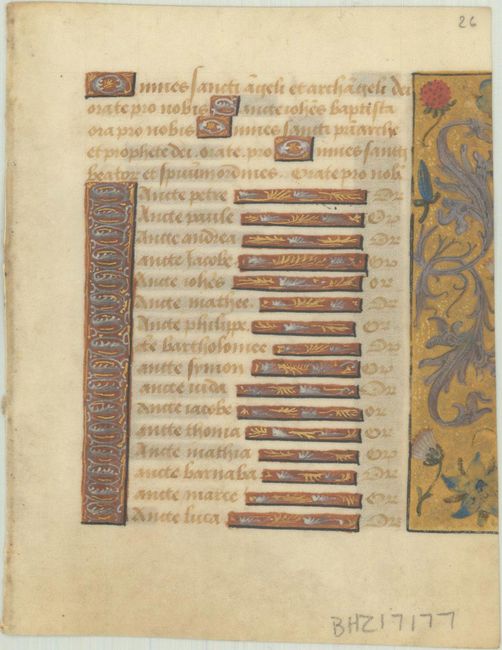 26
Omnes sancti āgeli et archāgeli dei
orate pro nobis Sancte iohēs baptista
ora pro nobis Omnes sancti pr̄iarche
et prophete dei. orate. pro Omnes sancti
beator et spirituum ordines. Orate pro nob
Sancte petre Or
Sancte paule Or
Sancte andrea Or
Sancte iacobe Or
Sancte iohēs or
Sancte mathee. Or
Sancte philippe. Or
Scte bartholomee Or
Sancte symon Or
Sancte iuda Or
Sancte iacobe Or
Sancte thoma Or
Sancte mathia Or
Sancte barnaba Or
Sancte marce Or
Sancte luca Or
BHZ17177